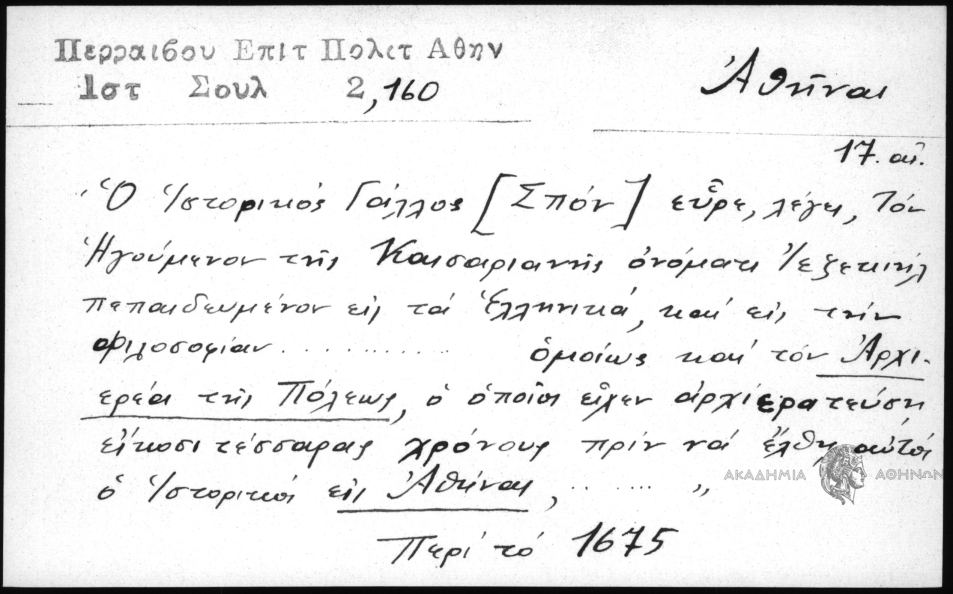 Περραιβου Επιτ Πολιτ Αθην
Ιστ Σουλ 2,160
Ἀθῆναι
17. αἰ.
"Ὁ Ἱστορικός Γάλλος [Σπόν] εὗρε, λέγει, τόν
Ἡγούμενον τῆς Καισαριανῆς ὀνόματι Ἰεζεκιήλ
πεπαιδευμένον εἰς τά Ἑλληνικά, καί εἰς τήν
Φιλοσοφίαν ............ ὁμοίως καί τόν Ἀρχι-
ερέα τῆς Πόλεως, ὁ ὁποῖος εἶχεν ἀρχιερατεύση
εἴκοσι τέσσαρας χρόνους πρίν νά ἔλθη αὐτός
ὁ Ἱστορικός εἰς Ἀθήνας, ........ "
Περί τό 1675
ΑΚΑΔΗΜΙΑ ΑΘΗΝΩΝ